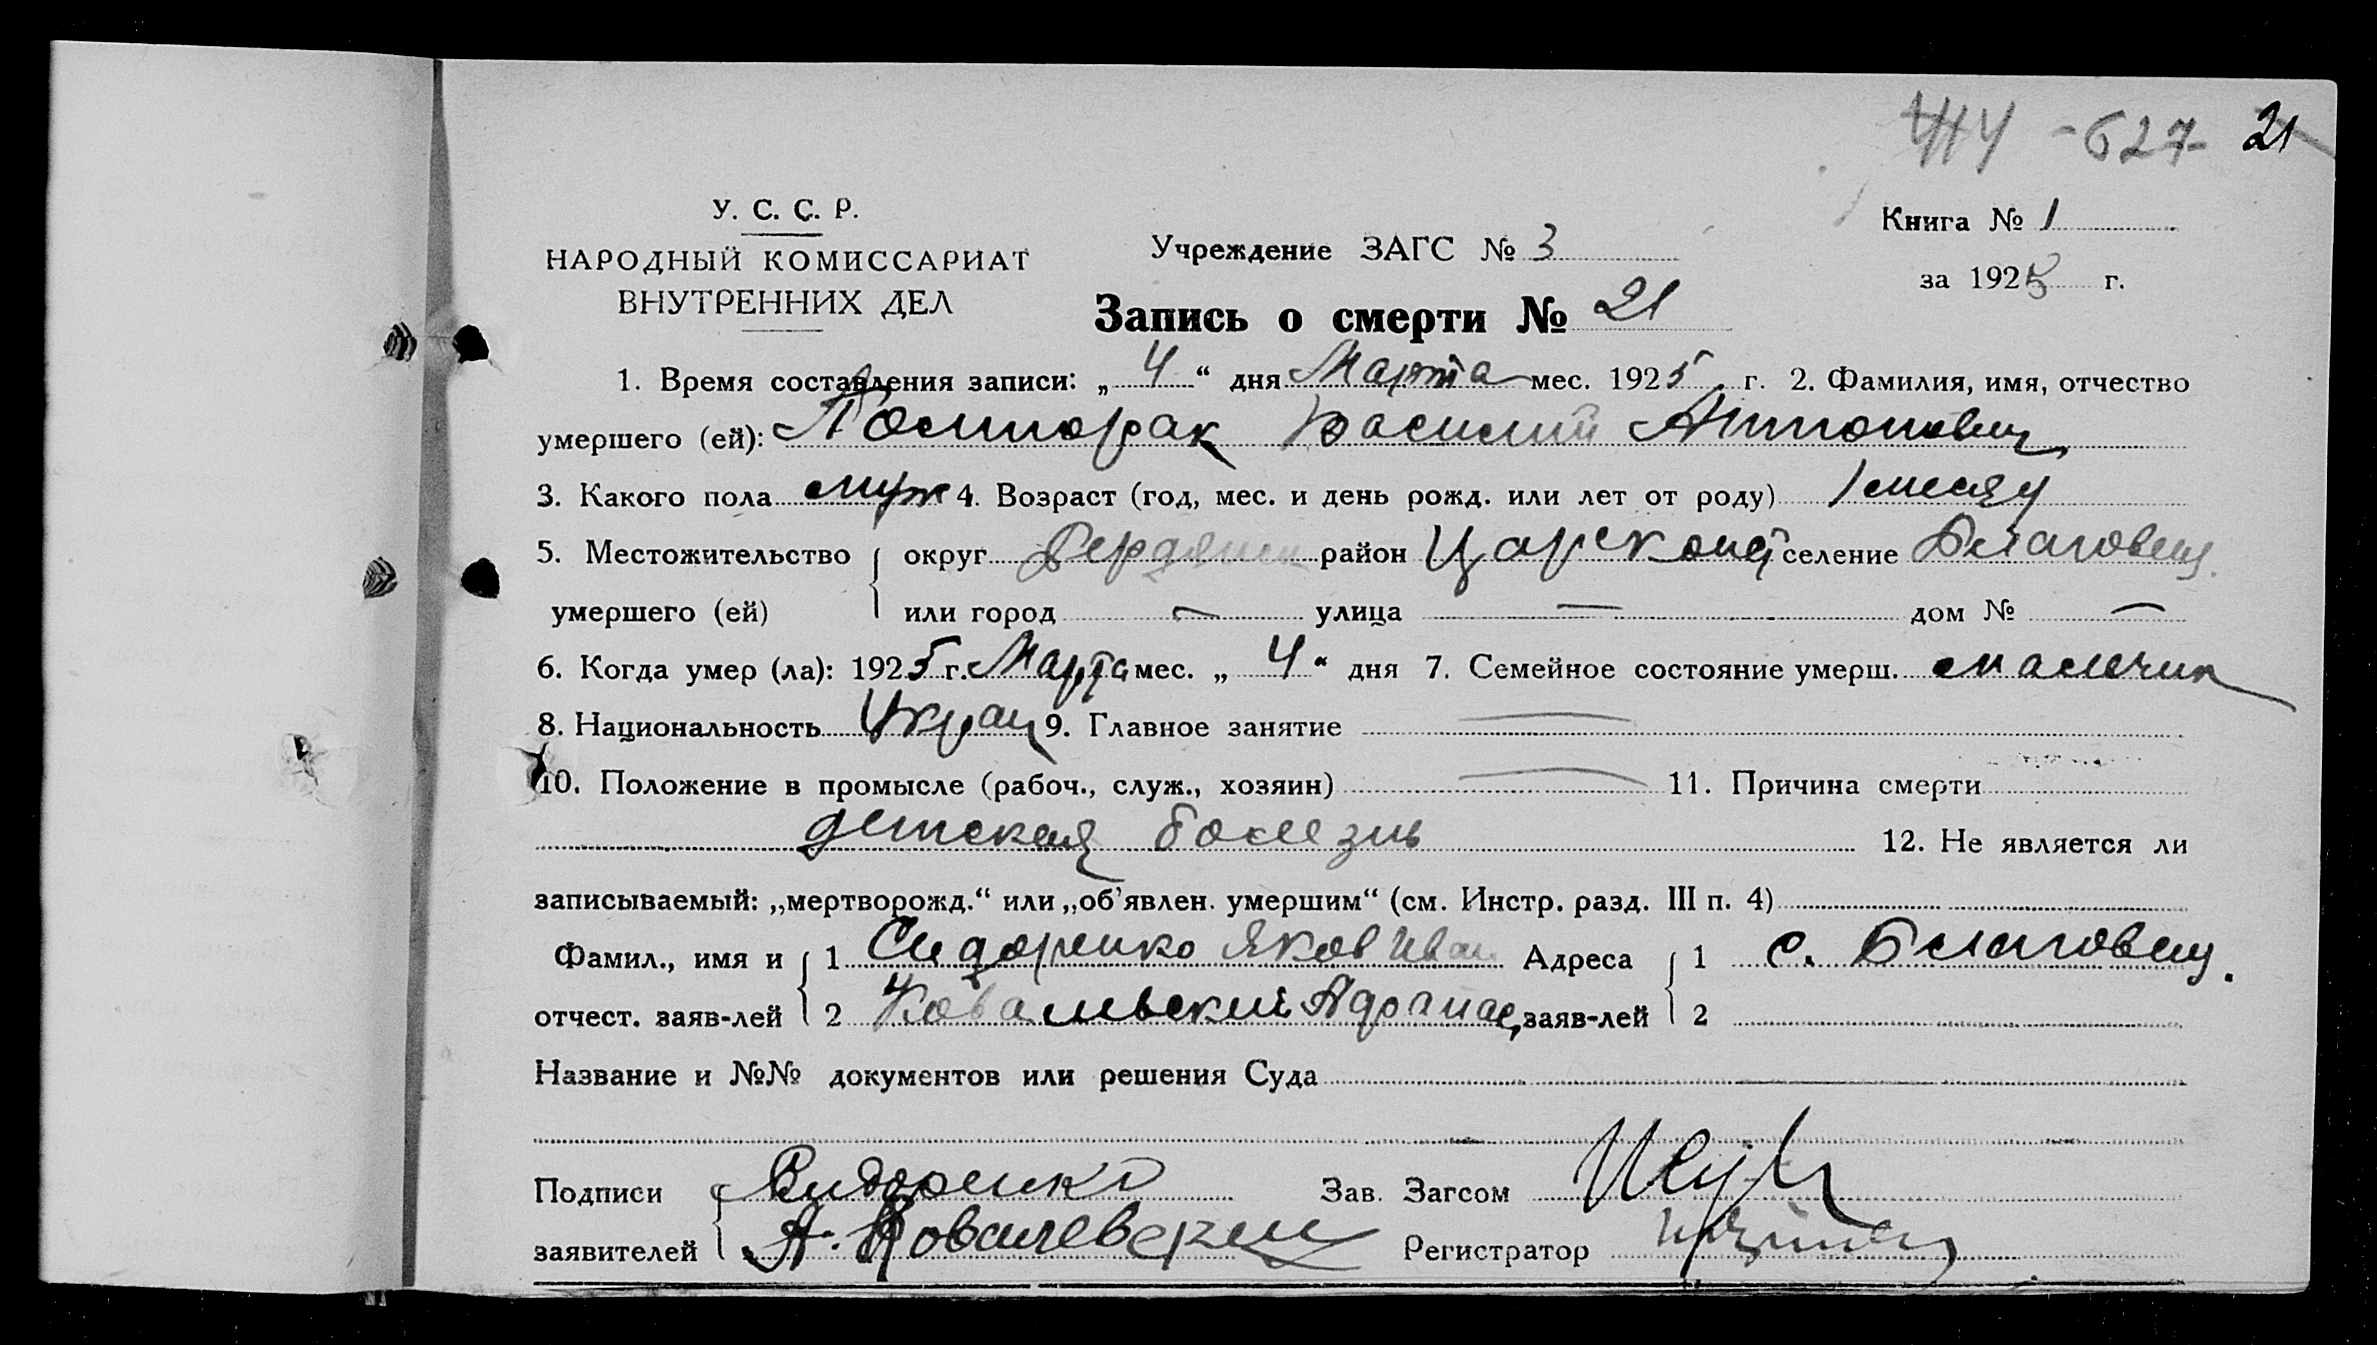 414 - 627- 21
У. С. С. Р.
НАРОДНЫЙ КОМИССАРИАТ
ВНУТРЕННИХ ДЕЛ
Учреждение ЗАГС № 3
Книга № 1
за 1925 г.
Запись о смерти № 21
1. Время составления записи: „ 4 “ дня Марта мес. 1925 г. 2. Фамилия, имя, отчество
умершего (ей): Полторак Василий Антонович
3. Какого пола муж 4. Возраст (год, мес. и день рожд. или лет от роду) 1 месяц
5. Местожительство округ Бердянск район Царекон селение Благовещ.
умершего (ей) или город — улица — дом № —
6. Когда умер (ла): 1925 г. Марта мес. „ 4 “ дня 7. Семейное состояние умерш. мальчик
8. Национальность Украц 9. Главное занятие —
10. Положение в промысле (рабоч., служ., хозяин) — 11. Причина смерти
детская болезнь 12. Не является ли
записываемый: „мертворожд.“ или „об’явлен. умершим“ (см. Инстр. разд. III п. 4)
Фамил., имя и 1 Сидоренко Яков Иван Адреса 1 с. Благовещ.
отчест. заяв-лей 2 Ковальский Афанас, заяв-лей 2
Название и №№ документов или решения Суда
Подписи Сидоренко Зав. Загсом
заявителей А. Ковалевский Регистратор